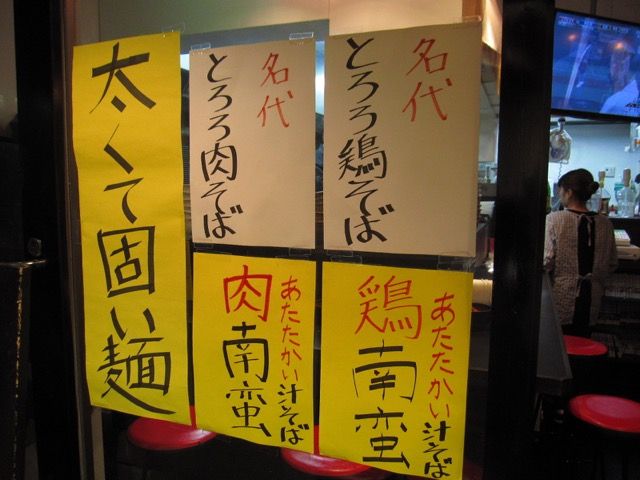 太くて固い麺
名代
とろろ肉そば
名代
とろろ鶏そば
あたたかい汁そば
肉南蛮
あたたかい汁そば
鶏南蛮